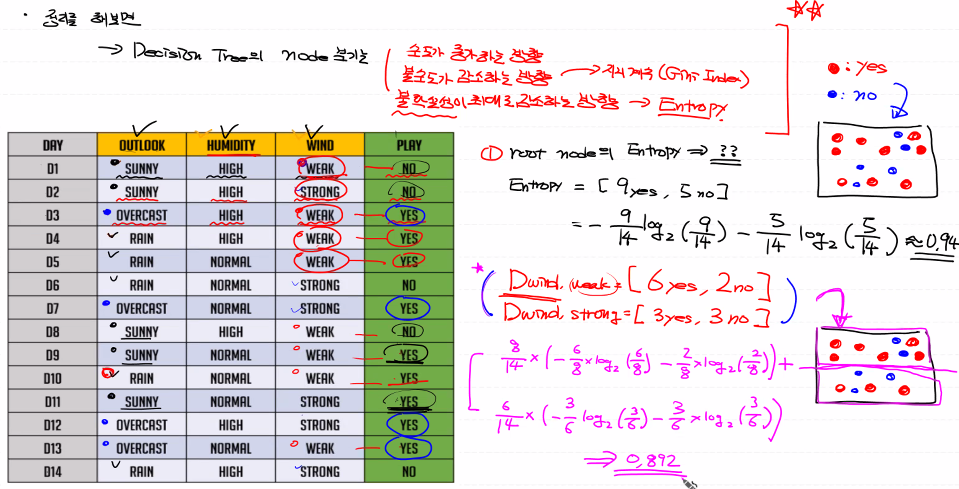 · 정리를 해보면
→ Decision Tree의 node 분기는
순도가 증가하는 방향
불순도가 감소하는 방향 → 지니계수 (Gini Index)
불확실성이 최대로 감소하는 방향 → Entropy
☆☆
● : yes
● : no
DAY OUTLOOK HUMIDITY WIND PLAY
D1 SUNNY HIGH WEAK NO
D2 SUNNY HIGH STRONG NO
D3 OVERCAST HIGH WEAK YES
D4 RAIN HIGH WEAK YES
D5 RAIN NORMAL WEAK YES
D6 RAIN NORMAL STRONG NO
D7 OVERCAST NORMAL STRONG YES
D8 SUNNY HIGH WEAK NO
D9 SUNNY NORMAL WEAK YES
D10 RAIN NORMAL WEAK YES
D11 SUNNY NORMAL STRONG YES
D12 OVERCAST HIGH STRONG YES
D13 OVERCAST NORMAL WEAK YES
D14 RAIN HIGH STRONG NO
① root node의 Entropy ⇒ ??
Entropy = [9yes, 5no]
= - 9/14 log2(9/14) - 5/14 log2(5/14) ≈ 0.94
* Dwind, weak = [6yes, 2no]
Dwind, strong = [3yes, 3no]
8/14 × (-6/8 × log2(6/8) - 2/8 × log2(2/8)) +
6/14 × (-3/6 log2(3/6) - 3/6 × log2(3/6))
⇒ 0.892